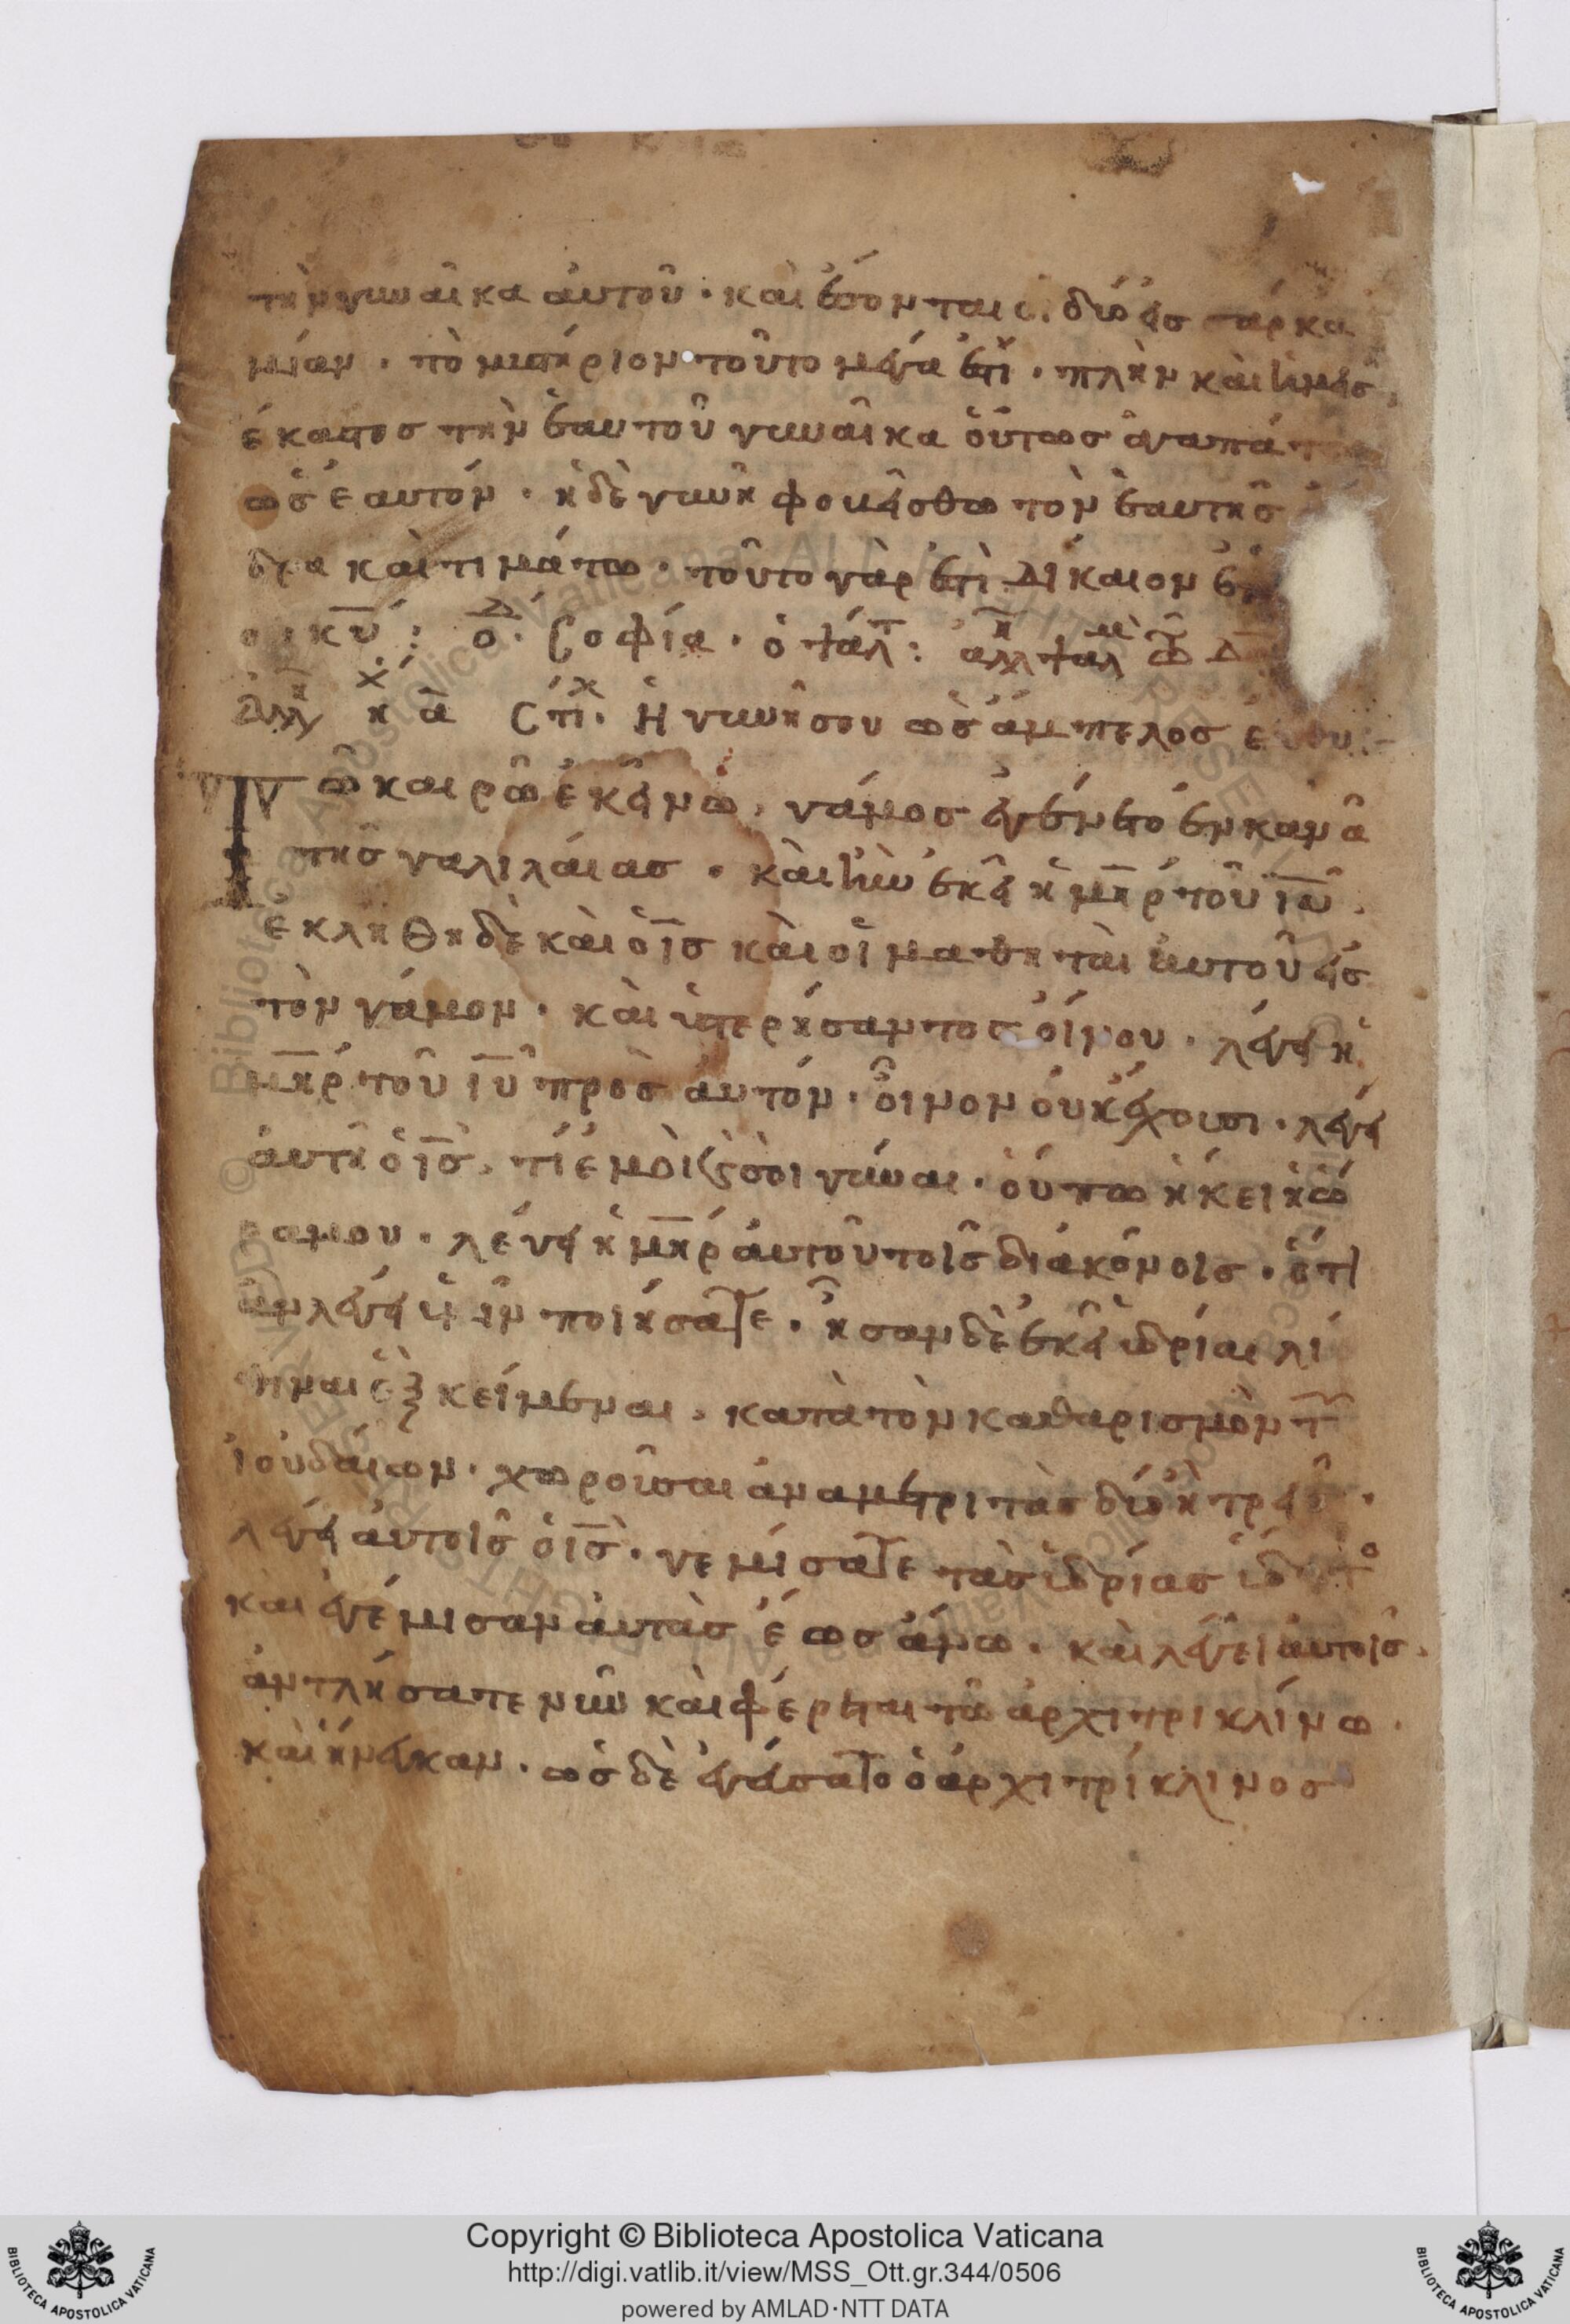 τὴν γυναῖκα αὐτοῦ · καὶ ἔσονται οἱ δύο εἰς σάρκα
μίαν · τὸ μυστήριον τοῦτο μέγα ἐστὶ · πλὴν καὶ ὑμεῖς
ἕκαστος τὴν ἑαυτοῦ γυναῖκα οὕτως ἀγαπάτω
ὡς ἑαυτόν · ἡ δὲ γυνὴ φοβείσθω τὸν ἑαυτῆς
δρα καὶ τιμάτω · τοῦτο γάρ ἐστι δίκαιον
κ̅υ̅ : ὁ δ · Σοφία · ὁ ψάλτ : αλλ ψαλ
Αλλη ἠ α Στι · Ἡ γυνή σου ὡς ἄμπελος εὐθυ
Τῶ καιρῶ ἐκείνω, γάμος ἐγένετο ἐν κανᾶ
τῆς γαλιλαίας · καὶ ἦν ἐκεῖ ἡ μ̅η̅ρ τοῦ ι̅υ̅ ·
ἐκλήθη δὲ καὶ ὁ ι̅ς̅ καὶ οἱ μαθηταὶ αὐτοῦ εἰς
τὸν γάμον · καὶ ὑστερήσαντος οἴνου · λέγει ἡ
μ̅η̅ρ τοῦ ι̅υ̅ πρὸς αὐτόν · οἶνον οὐκ ἔχουσι · λέγει
αὐτῆ ὁ ι̅ς̅ · τί ἐμοὶ ϗ σοὶ γύναι · οὔπω ἥκει ἡ ὥ
ρα μου · λέγει ἡ μ̅η̅ρ αὐτοῦ τοῖς διακόνοις · ὅτι
ἂν λέγει ὑμῖν ποιήσατε · ἦσαν δὲ ἐκεῖ ὑδρίαι λί
θιναι ἓξ κείμεναι, κατὰ τὸν καθαρισμὸν τ῀
ἰουδαίων · χωροῦσαι ἀνὰ μετριτὰς δύο ἢ τρεῖς ·
λέγει αὐτοῖς ὁ ι̅ς̅ · γεμίσατε τὰς ὑδρίας ὕδατο
καὶ ἐγέμισαν αὐτὰς ἕως ἄνω · καὶ λέγει αὐτοῖς ·
ἀντλήσατε νῦν καὶ φέρεται τῶ ἀρχιτρικλίνω ·
καὶ ἤνεγκαν · ὡς δὲ ἐγεύσατο ὁ ἀρχιτρίκλινος
Copyright © Biblioteca Apostolica Vaticana
http://digi.vatlib.it/view/MSS_Ott.gr.344/0506
powered by AMLAD·NTT DATA